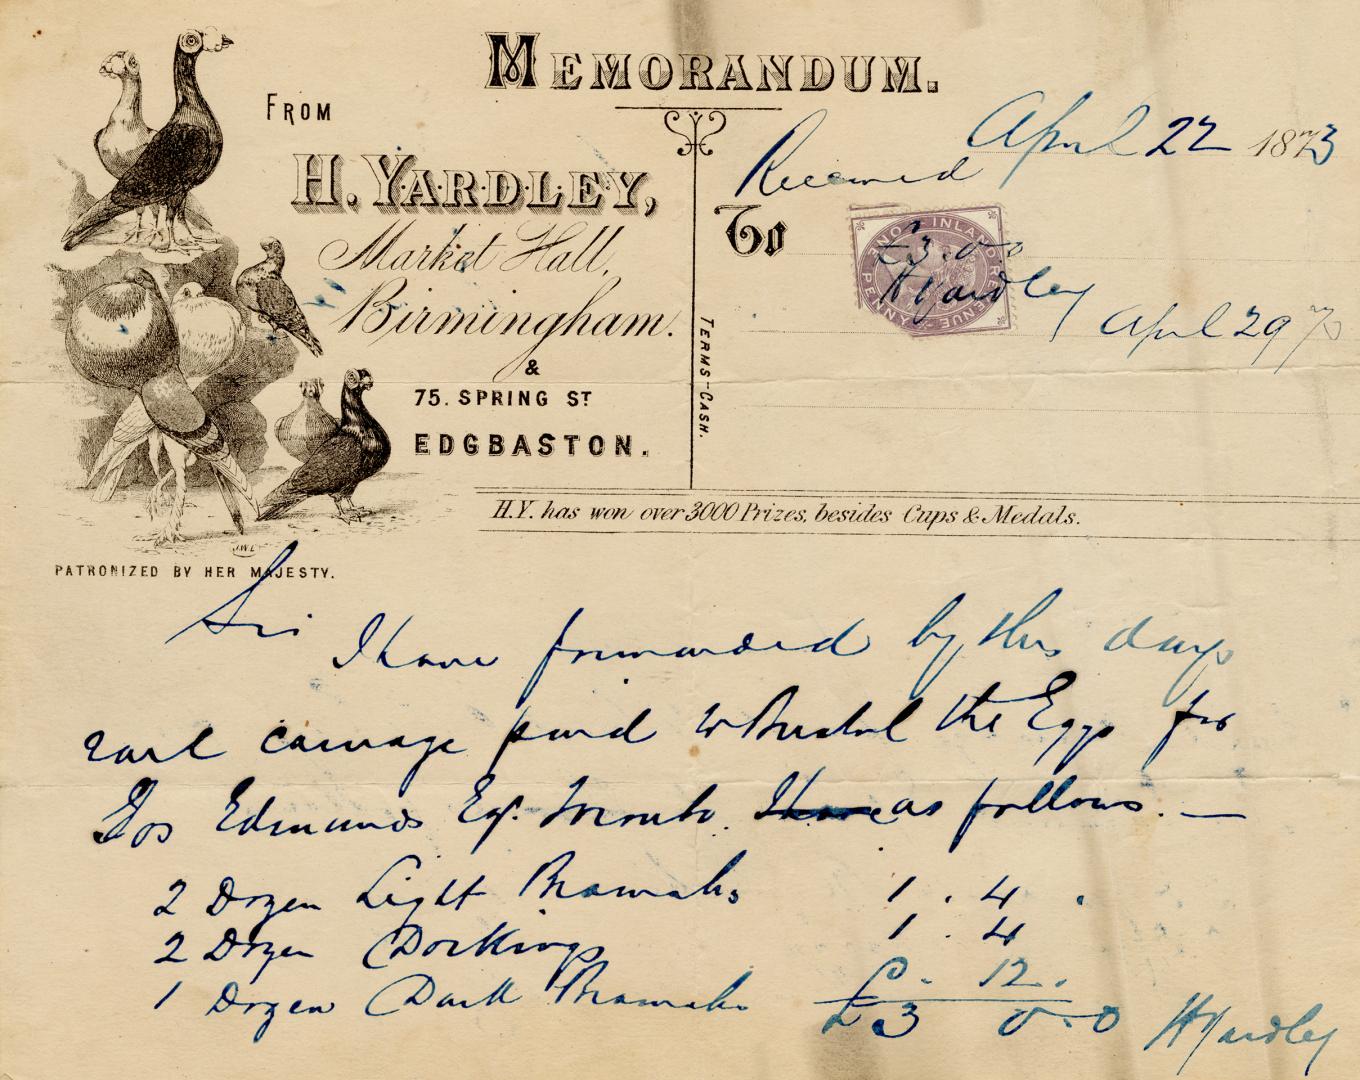 MEMORANDUM.
FROM
H. YARDLEY,
Market Hall,
Birmingham.
&
75. SPRING ST
EDGBASTON.
TERMS-CASH.
April 22 1873
Received
To
INLAND REVENUE ONE PENNY
£3.0.0
H Yardley
April 29 73
H.Y. has won over 3000 Prizes, besides Cups & Medals.
J.W.L
PATRONIZED BY HER MAJESTY.
Sir
I have forwarded by this days
rail carriage paid to Bristol the Eggs for
Jos Edmunds Esq. as follows. —
2 Dozen Light Bramahs 1 . 4 .
2 Dozen Dorkings 1 . 4
1 Dozen Dark Bramahs 0 . 12 .
£3 0.0
H Yardley